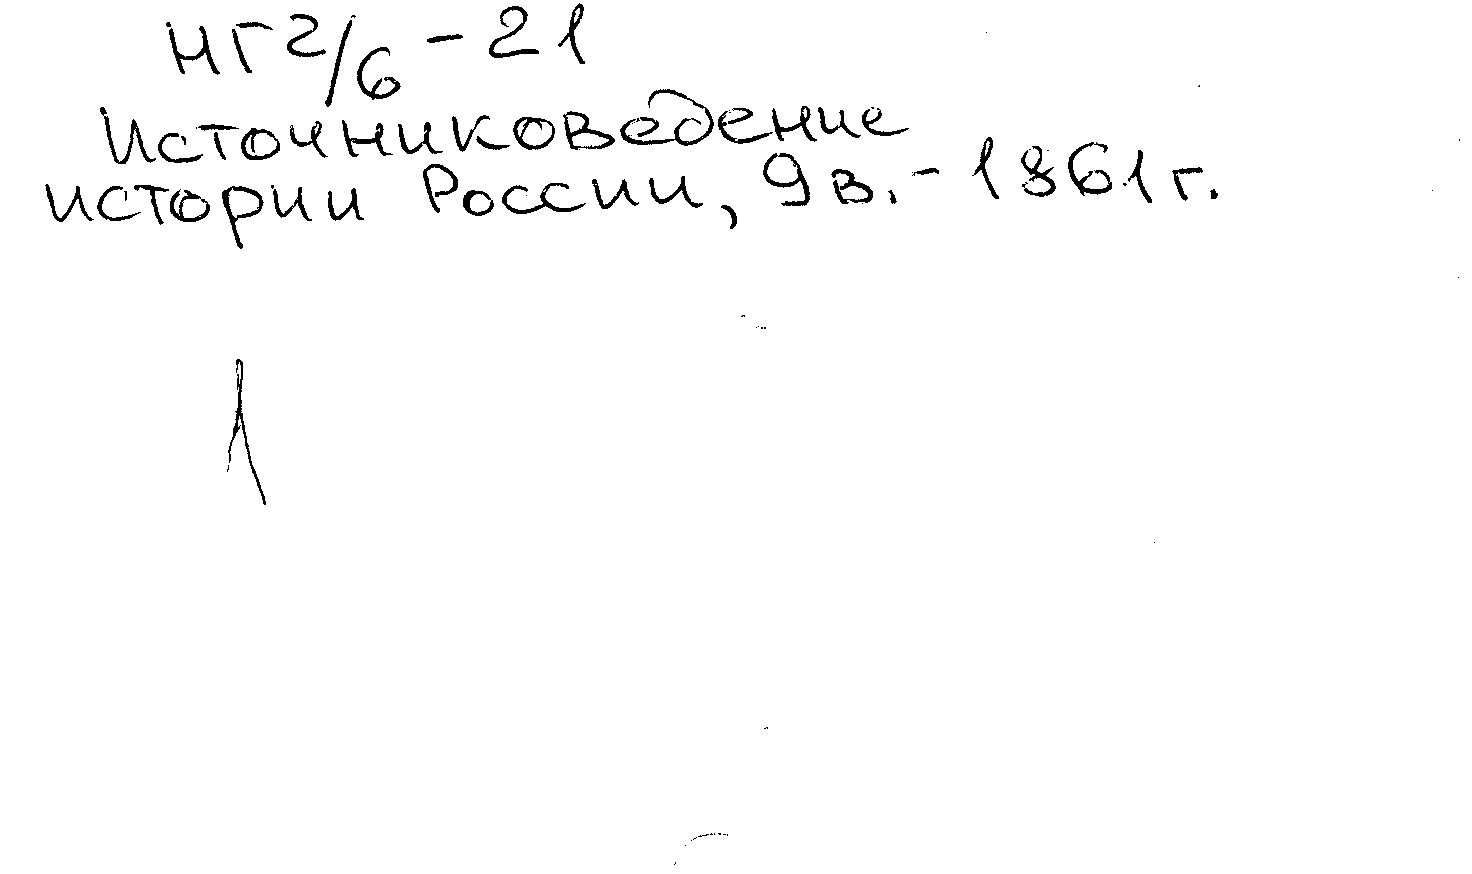 НГ2/6 - 21
Источниковедение
истории России, 9в. - 1861г.
1